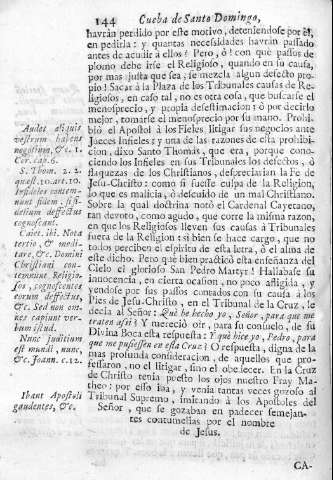 144
Cueba de Santo Domingo,
havràn perdido por este motivo, deteniendose por èl,
en pedirla: y quantas necesidades havràn passado
antes de acudir à ellos? Pero, ò! con què passos de
plomo debe irse el Religioso, quando en su causa,
por mas justa que sea, se mezcla algun defecto pro-
pio! Sacar à la Plaza de los Tribunales causas de Re-
ligiosos, en caso tal, no es otra cosa, que buscarse el
menosprecio, y propia desestimacion; ò por decirlo
mejor, tomarse el menosprecio por su mano. Prohi-
biò el Apostol à los Fieles litigar sus negocios ante
Jueces Infieles y otra de las razones de esta prohibi-
cion, dixo Santo Thomàs, que era, porque cono-
ciendo los Infieles en sus Tribunales los defectos, ò
flaquezas de los Christianos, despreciarian la Fè de
Jesu-Christo: como si fuesse culpa de la Religion,
lo que es malicia, ò descuido de un mal Christiano.
Sobre la qual doctrina notò el Cardenal Cayetano,
tan devoto, como agudo, que corre la misma razon,
en que los Religiosos lleven sus causas à Tribunales
fuera de la Religion: si bien se hace cargo, que no
todos perciben el espiritu de esta letra, ò el alma de
este dicho. Pero què bien practicò esta enseñanza del
Cielo el glorioso San Pedro Martyr! Hallabase su
innocencia, en cierta ocasion, no poco afligida, y
yendose por sus passos contados con su causa à los
Pies de Jesu-Christo, en el Tribunal de la Cruz, le
decia al Señor: Què he hecho yo, Señor, para que me
traten assi? Y mereciò oir, para su consuelo, de su
Divina Boca esta respuesta: Y què hice yo, Pedro, para
que me pusiessen en esta Cruz? O respuesta, digna de la
mas profunda consideracion, de aquellos que pro-
fessaron, no el litigar, sino el obedecer. En la Cruz
de Christo tenia puesto los ojos nuestro Fray Ma-
theo: por esso iba, y venia tantas veces gozoso al
Tribunal Supremo, imitando à los Apostoles del
Señor, que se gozaban en padecer semejan-
tes contumelias por el nombre
de Jesus.
CA-
Audet aliquis
vestrum habens
negotium, &c. 1.
Cor. cap. 6.
S. Thom. 2. 2.
quæst. 10. art. 10.
Infideles contem-
nunt fidem, si fi-
delium deffectus
cognoscant.
Caiet. ibi. Nota
tertio, & medi-
tare, &c. Domini
Christiani con-
temnunt Religio-
sos, cognoscentes
eorum deffectus,
&c. Sed non om-
nes capiunt ver-
bum istud.
Nunc juditium
est mundi, nunc,
&c. Joann. c. 12.
Ibant Apostoli
gaudentes, &c.